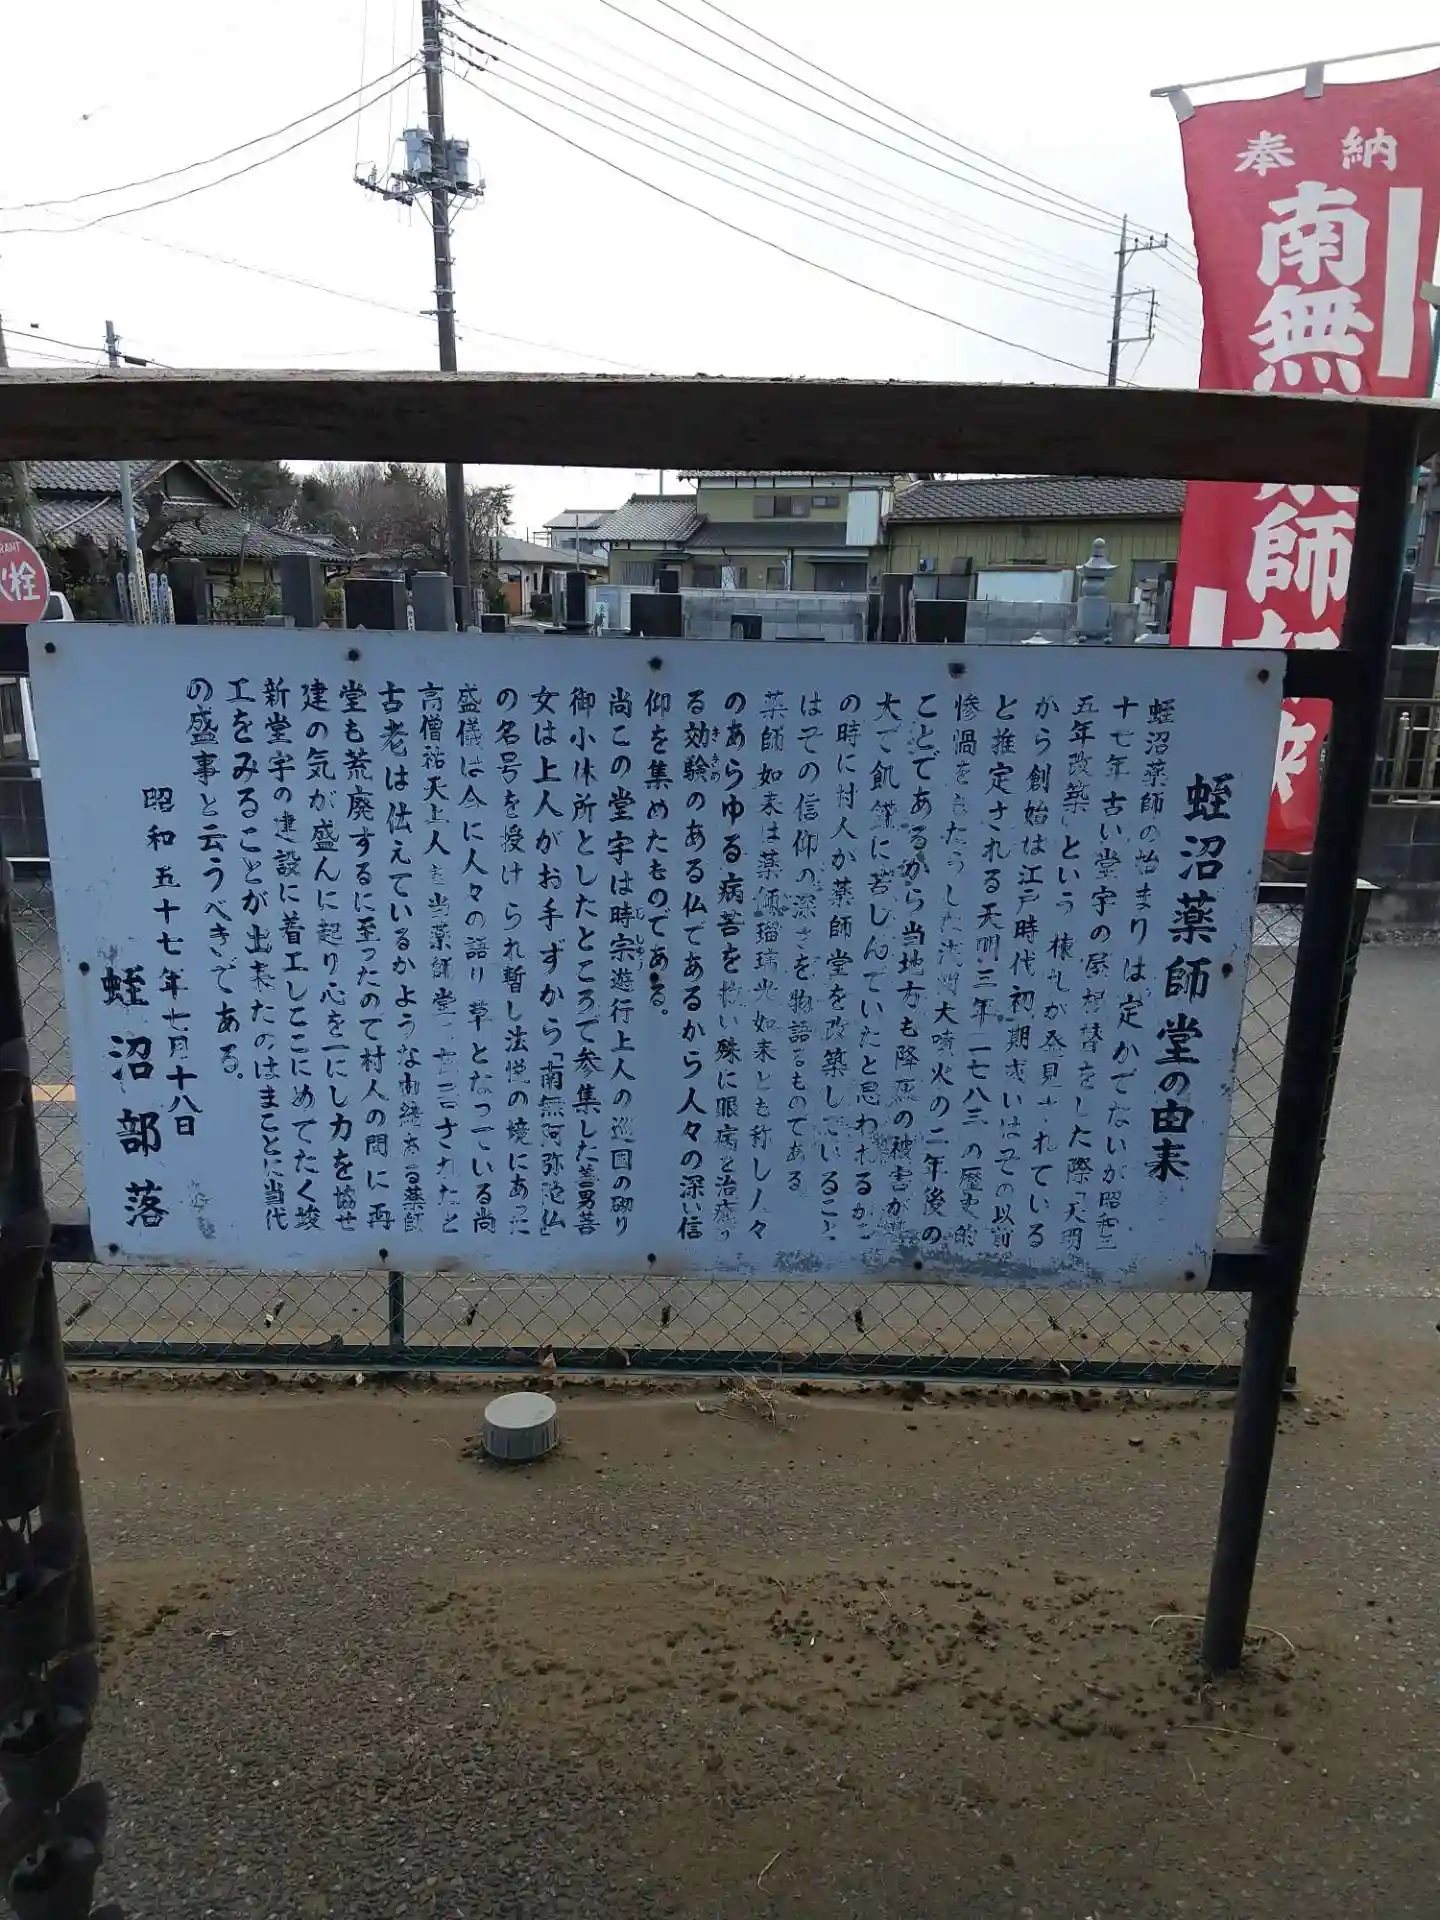 奉納
南無
師
来
RANT
火栓
蛭沼薬師堂の由来
蛭沼薬師の始まりは定かでないが昭和三
十七年古い堂宇の屋根替をした際「天明
五年改築」という棟札が発見されている
から創始は江戸時代初期或いはその以前
と推定される天明三年(一七八三)の歴史的
惨渦をもたらした浅間大噴火の二年後の
ことであるから当地方も降灰の被害が
大で飢饉に苦しんでいたと思われるがこ
の時に村人が薬師堂を改築していること
はその信仰の深さを物語るものである
薬師如来は薬師瑠璃光如来とも称し人々
のあらゆる病苦を救い殊に眼病を治癒す
る効験のある仏であるから人々の深い信
ききめ
仰を集めたものである。
尚この堂宇は時宗遊行上人の巡国の砌り
じしゅう
御小休所としたところで参集した善男善
女は上人がお手ずから「南無阿弥陀仏」
の名号を授けられ暫し法悦の境にあった
盛儀は今に人々の語り草となっている尚
高僧祐天上人も当薬師堂に されたと
古老は伝えているかような由緒ある薬師
堂も荒廃するに至ったので村人の間に再
建の気が盛んに起り心を一にし力を協せ
新堂宇の建設に着工しここにめでたく竣
工をみることが出来たのはまことに当代
の盛事と云うべきである。
昭和五十七年七月十八日
蛭沼部落